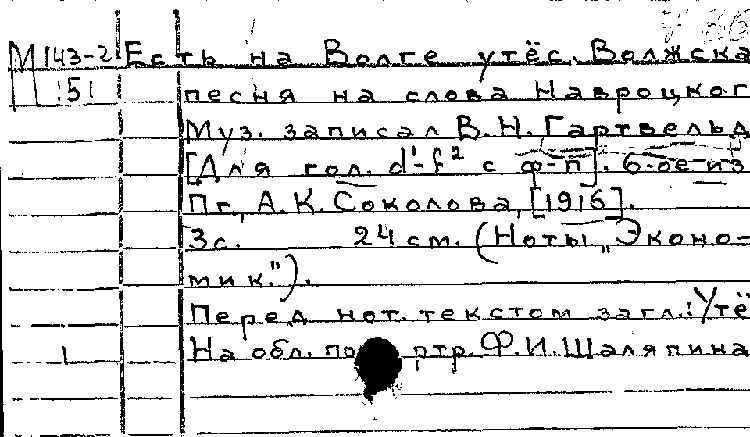 М 143-2 Есть на Волге утёс. Волжска
151 песня на слова Навроцког
Муз. записал В.Н. Гартвельд
[Для гол. d'-f² с ф-п]. 6-ое из
Пг, А.К. Соколова, [1916].
3 с. 24 см. (Ноты „Эконо=
мик.").
Перед нот. текстом загл.: Утё
1 На обл. по ртр. Ф.И. Шаляпина